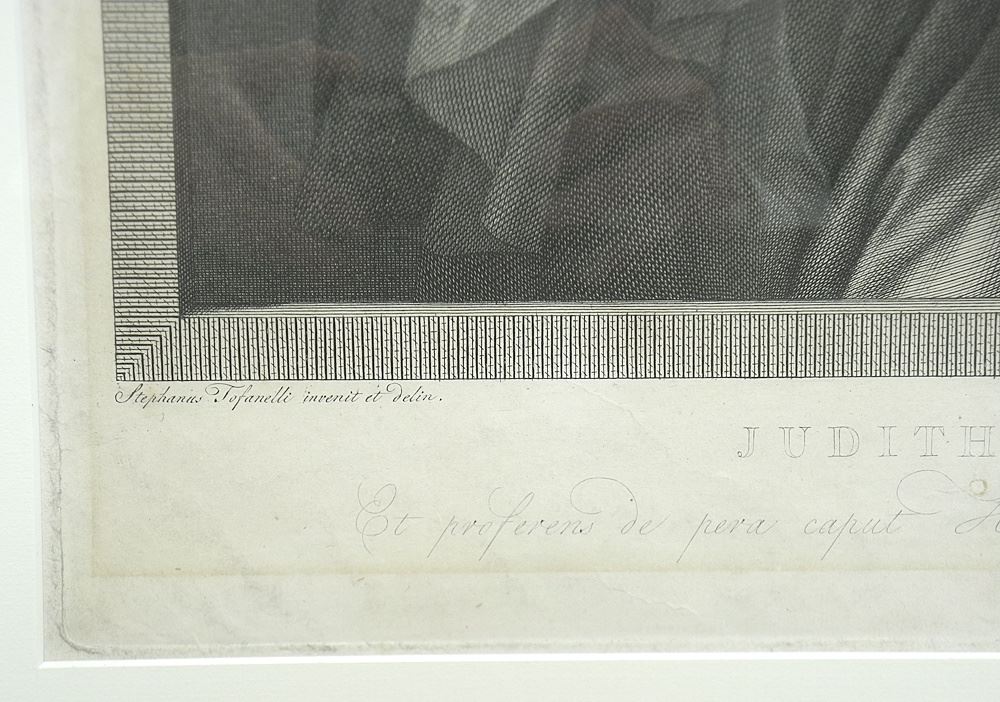 Stephanus Tofanelli invenit et delin.
JUDITH
Et proferens de pera caput